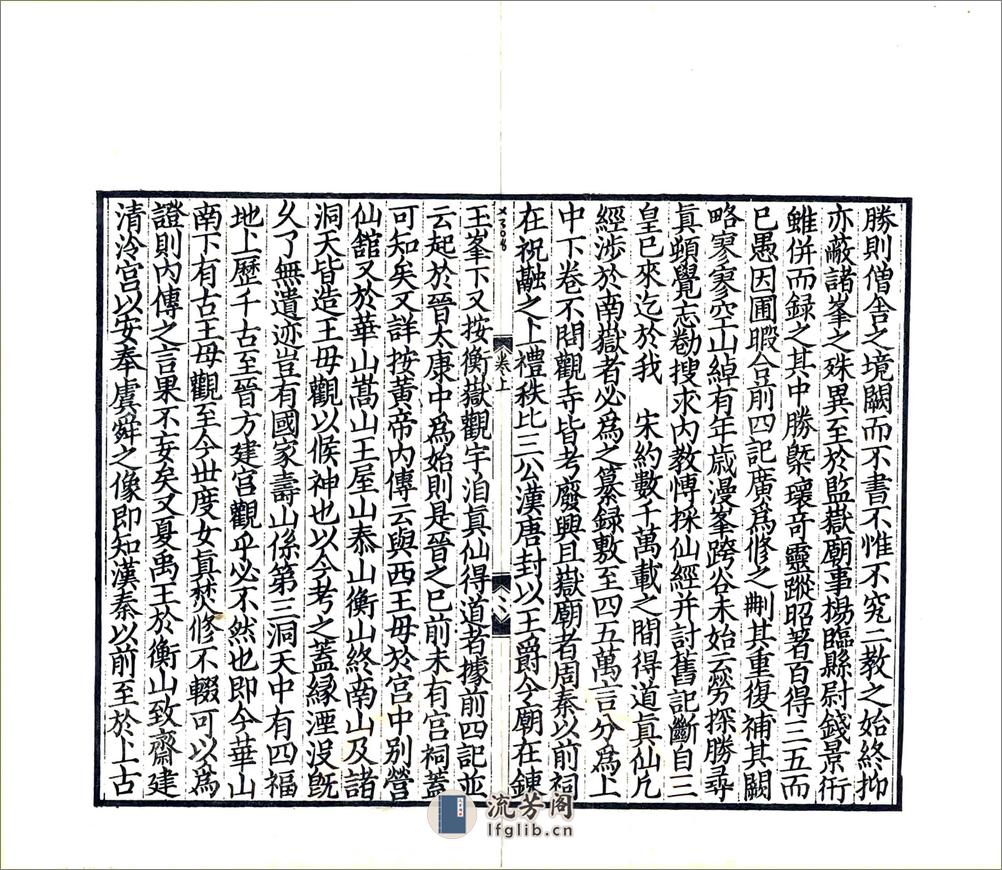 勝則僧舍之境闕而不書不惟不究二教之始終抑
亦蔽諸峯之殊異至於監獄廟事楊臨縣尉錢景衎
雖併而録之其中勝槩壞奇靈蹤昭著百得三五而
已愚因圃暇合前四記廣爲修之刪其重復補其闕
略寥寥空山綽有年歲漫峯跨谷未始云勞探勝尋
眞頓覺忘勌搜求内教博採仙經并討舊記斷自三
皇已來迄於我　宋約數千萬載之間得道眞仙凡
經涉於南嶽者必爲之纂録數至四五萬言分爲上
中下卷不問觀寺皆考廢興且嶽廟者周秦以前祠
在祝融之上禮秩比三公漢唐封以王爵今廟在錬
卷上
二
玉峯下又按衡嶽觀宇洎眞仙得道者據前四記並
云起於晉太康中爲始則是晉之已前未有宫祠蓋
可知矣又詳按黄帝内傳云與西王母於宫中别營
仙舘又於華山嵩山王屋山泰山衡山終南山及諸
洞天皆造王母觀以候神也以今考之蓋緣湮沒旣
久了無遺迹豈有國家壽山係第三洞天中有四福
地上歷千古至晉方建宫觀乎必不然也即今華山
南下有古王母觀至今丗度女眞焚修不輟可以爲
證則内傳之言果不妄矣又夏禹王於衡山致齋建
清冷宫以安奉虞舜之像即知漢秦以前至於上古
流芳阁
lfglib.cn